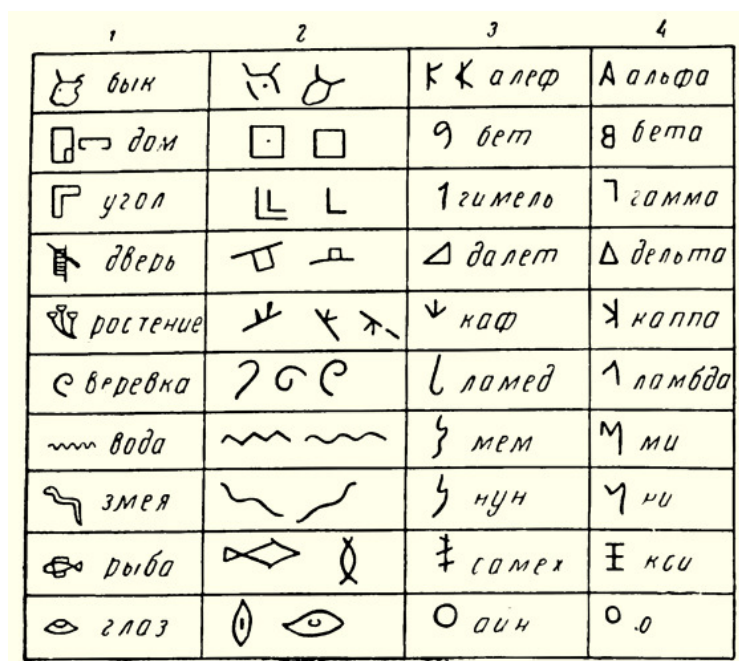 1 2 3 4
бык алеф альфа
дом бет бета
угол гимель гамма
дверь далет дельта
растение каф каппа
веревка ламед ламбда
вода мем ми
змея нун ни
рыба самех кси
глаз аин .о